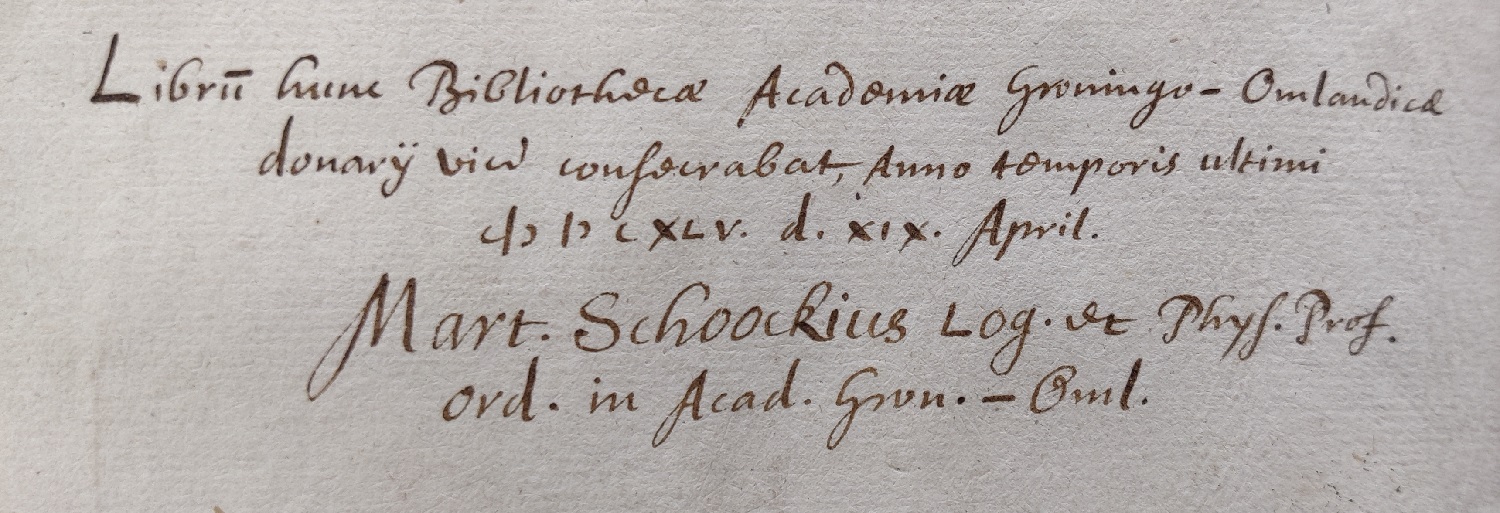 Librū hunc Bibliothecæ Academiæ Groningo-Omlandicæ
donarÿ vice consecrabat, Anno temporis ultimi
cIↃ IↃ c XLV. d. XIX. April.
Mart. Schoockius Log. et Phys. Prof.
ord. in Acad. Gron.-Oml.